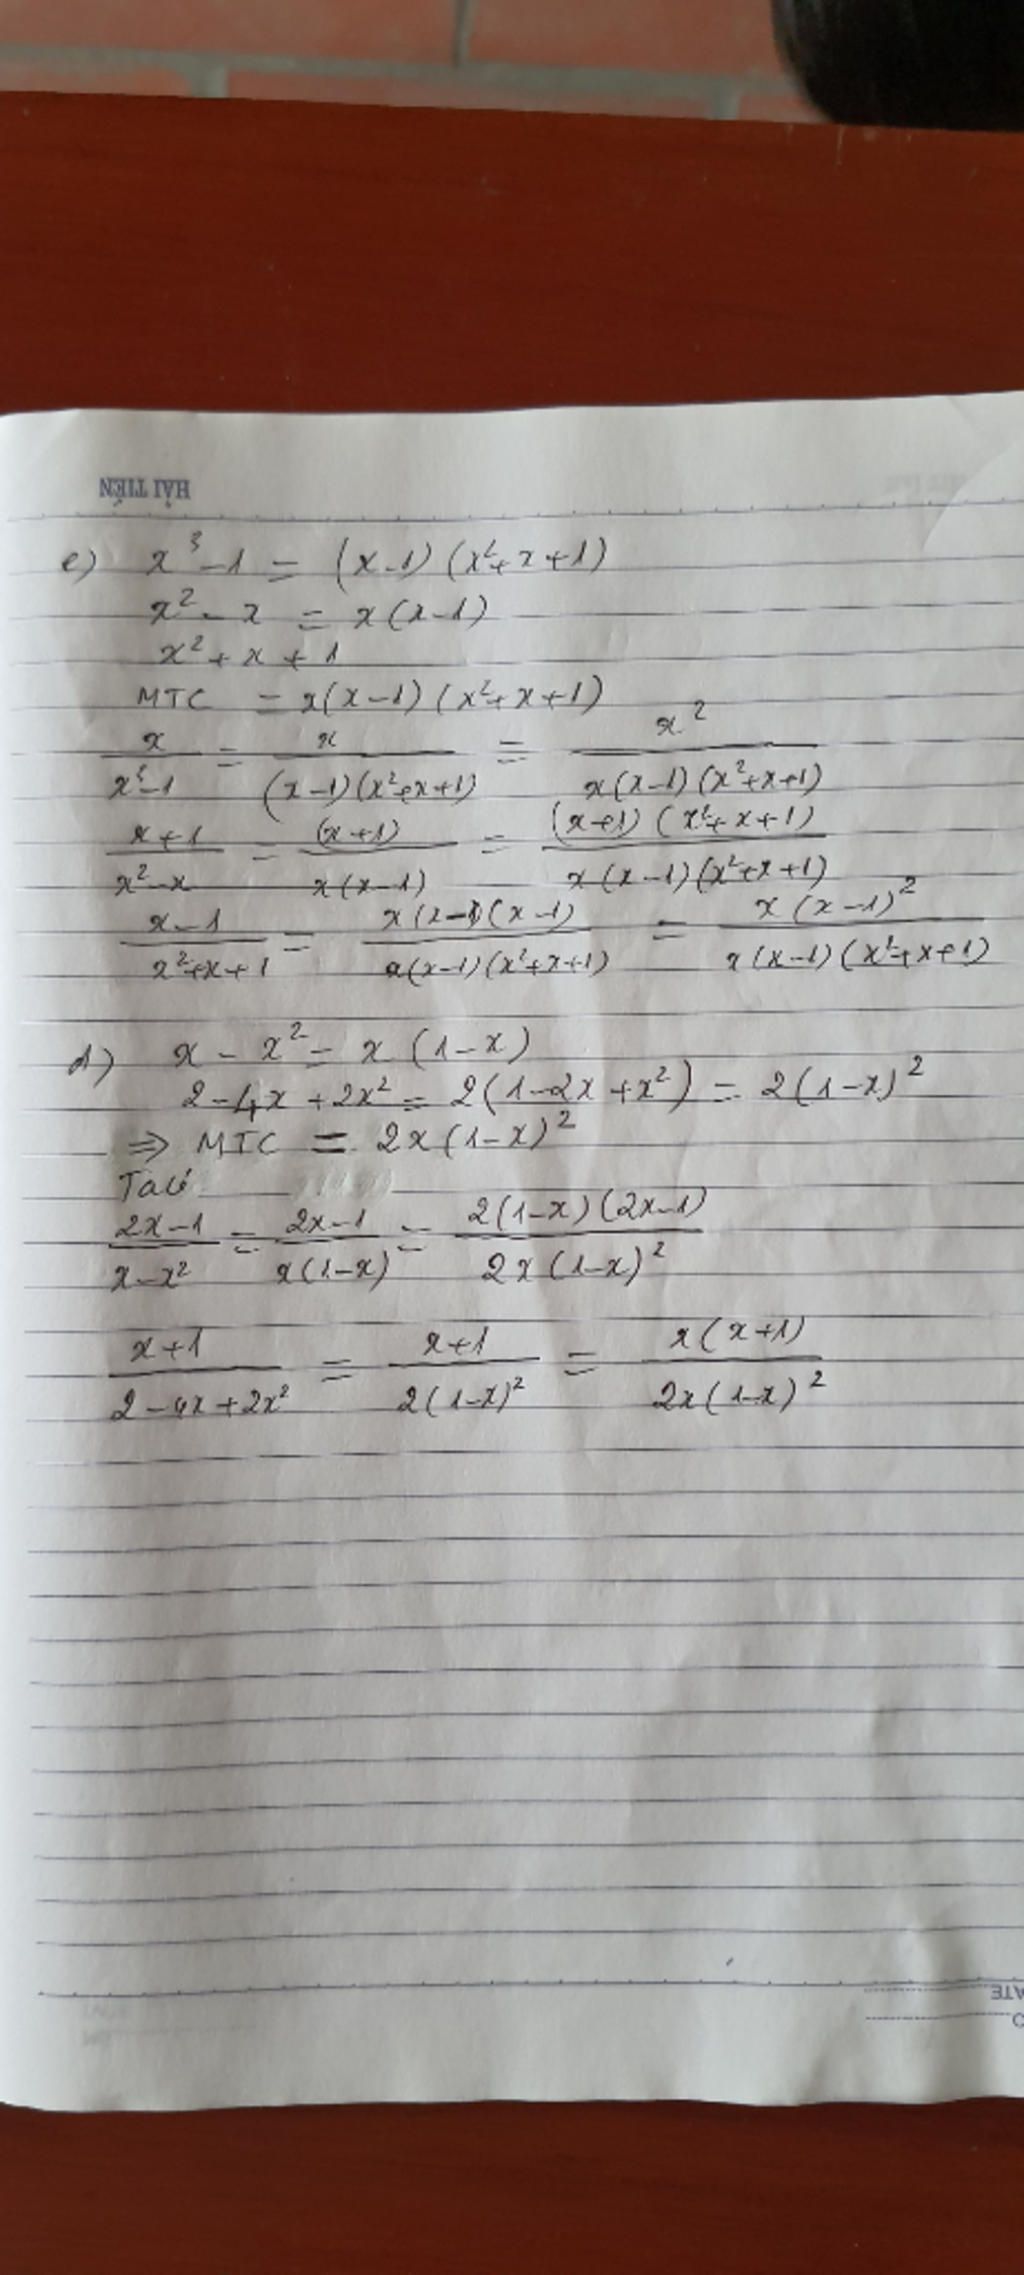 HẢI TIẾN
e) x³-1 = (x-1)(x²+x+1)
x²-x = x(x-1)
x²+x+1
MTC = x(x-1)(x²+x+1)
x/(x³-1) = x/((x-1)(x²+x+1)) = x²/(x(x-1)(x²+x+1))
(x+1)/(x²-x) = (x+1)/(x(x-1)) = (x+1)(x²+x+1)/(x(x-1)(x²+x+1))
(x-1)/(x²+x+1) = x(x-1)(x-1)/(x(x-1)(x²+x+1)) = x(x-1)²/(x(x-1)(x²+x+1))
d) x-x² = x(1-x)
2-4x+2x² = 2(1-2x+x²) = 2(1-x)²
⇒ MTC = 2x(1-x)²
Ta có
(2x-1)/(x-x²) = (2x-1)/(x(1-x)) = 2(1-x)(2x-1)/(2x(1-x)²)
(x+1)/(2-4x+2x²) = (x+1)/(2(1-x)²) = x(x+1)/(2x(1-x)²)